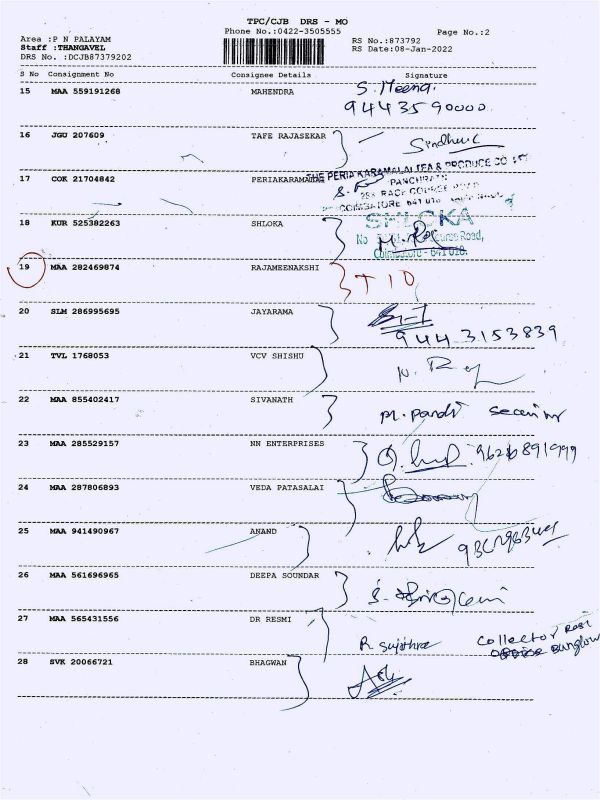 TPC/CJB DRS - MO
Phone No.:0422-3505555 Page No.:2
Area :P N PALAYAM RS No.:873792
Staff :THANGAVEL RS Date:08-Jan-2022
DRS No. :DCJB87379202
S No Consignment No Consignee Details Signature
15 MAA 559191268 MAHENDRA S. Meena
9443590000
16 JGU 207609 TAFE RAJASEKAR
THE PERIA KARAMALAI TEA & PRODUCE CO
17 COK 21704842 PERIAKARAMALAI PANCHRATN
RACE COURSE ROAD
COIMBATORE 641 018
18 KUR 525382263 SHLOKA SHLOKA
No Road,
Coimbatore - 641 018.
19 MAA 282469874 RAJAMEENAKSHI
20 SLM 286995695 JAYARAMA
9443153839
21 TVL 1768053 VCV SHISHU
22 MAA 855402417 SIVANATH M. Pandi
23 MAA 285529157 NN ENTERPRISES
24 MAA 287806893 VEDA PATASALAI
25 MAA 941490967 ANAND
26 MAA 561696965 DEEPA SOUNDAR
27 MAA 565431556 DR RESMI
R Sujithra Collector
Bunglow
28 SVK 20066721 BHAGWAN